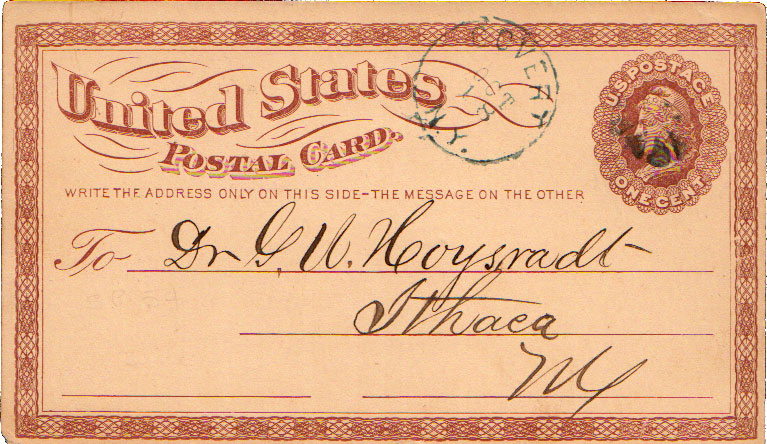 United States
POSTAL CARD.
WRITE THE ADDRESS ONLY ON THIS SIDE-THE MESSAGE ON THE OTHER
U.S. POSTAGE
ONE CENT
COVERT
OCT
13
N.Y.
To Dr G. W. Hoysradt
Ithaca
NY